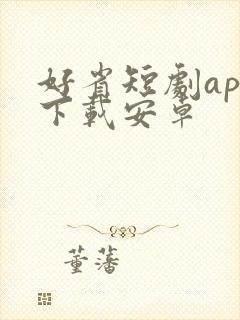 好省短劇ap
下載安卓
董藩